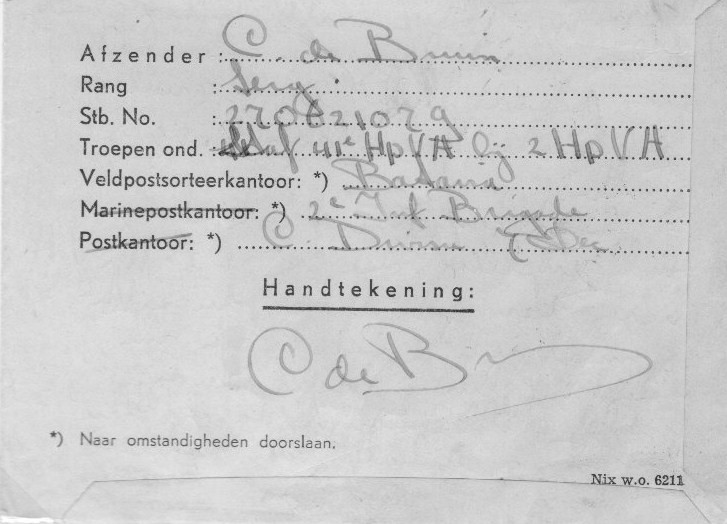 Afzender : C de Bruin
Rang : Serg.
Stb. No. : 270621079
Troepen ond. Staf 41e HpVA bij 2 HpVA
Veldpostsorteerkantoor: *) Batavia
Marinepostkantoor: *) 2e Inf Brigade
Postkantoor: *) C Divisie 7 Dec
Handtekening:
C de B
*) Naar omstandigheden doorslaan.
Nix w.o. 6211